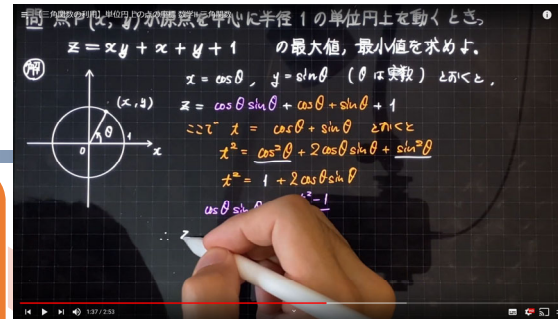 【三角関数の利用】単位円上の点の座標 数学Ⅱ 三角関数
問 点P(x, y)が原点を中心に半径1の単位円上を動くとき。
z = xy + x + y + 1 の最大値, 最小値を求めよ。
解
x = cosθ, y = sinθ (θは実数) とおくと。
z = cosθ sinθ + cosθ + sinθ + 1
ここで t = cosθ + sinθ とおくと
t² = cos²θ + 2cosθ sinθ + sin²θ
t² = 1 + 2cosθ sinθ
(x, y)
θ
0
1
x
∴ z
1:37 / 2:53